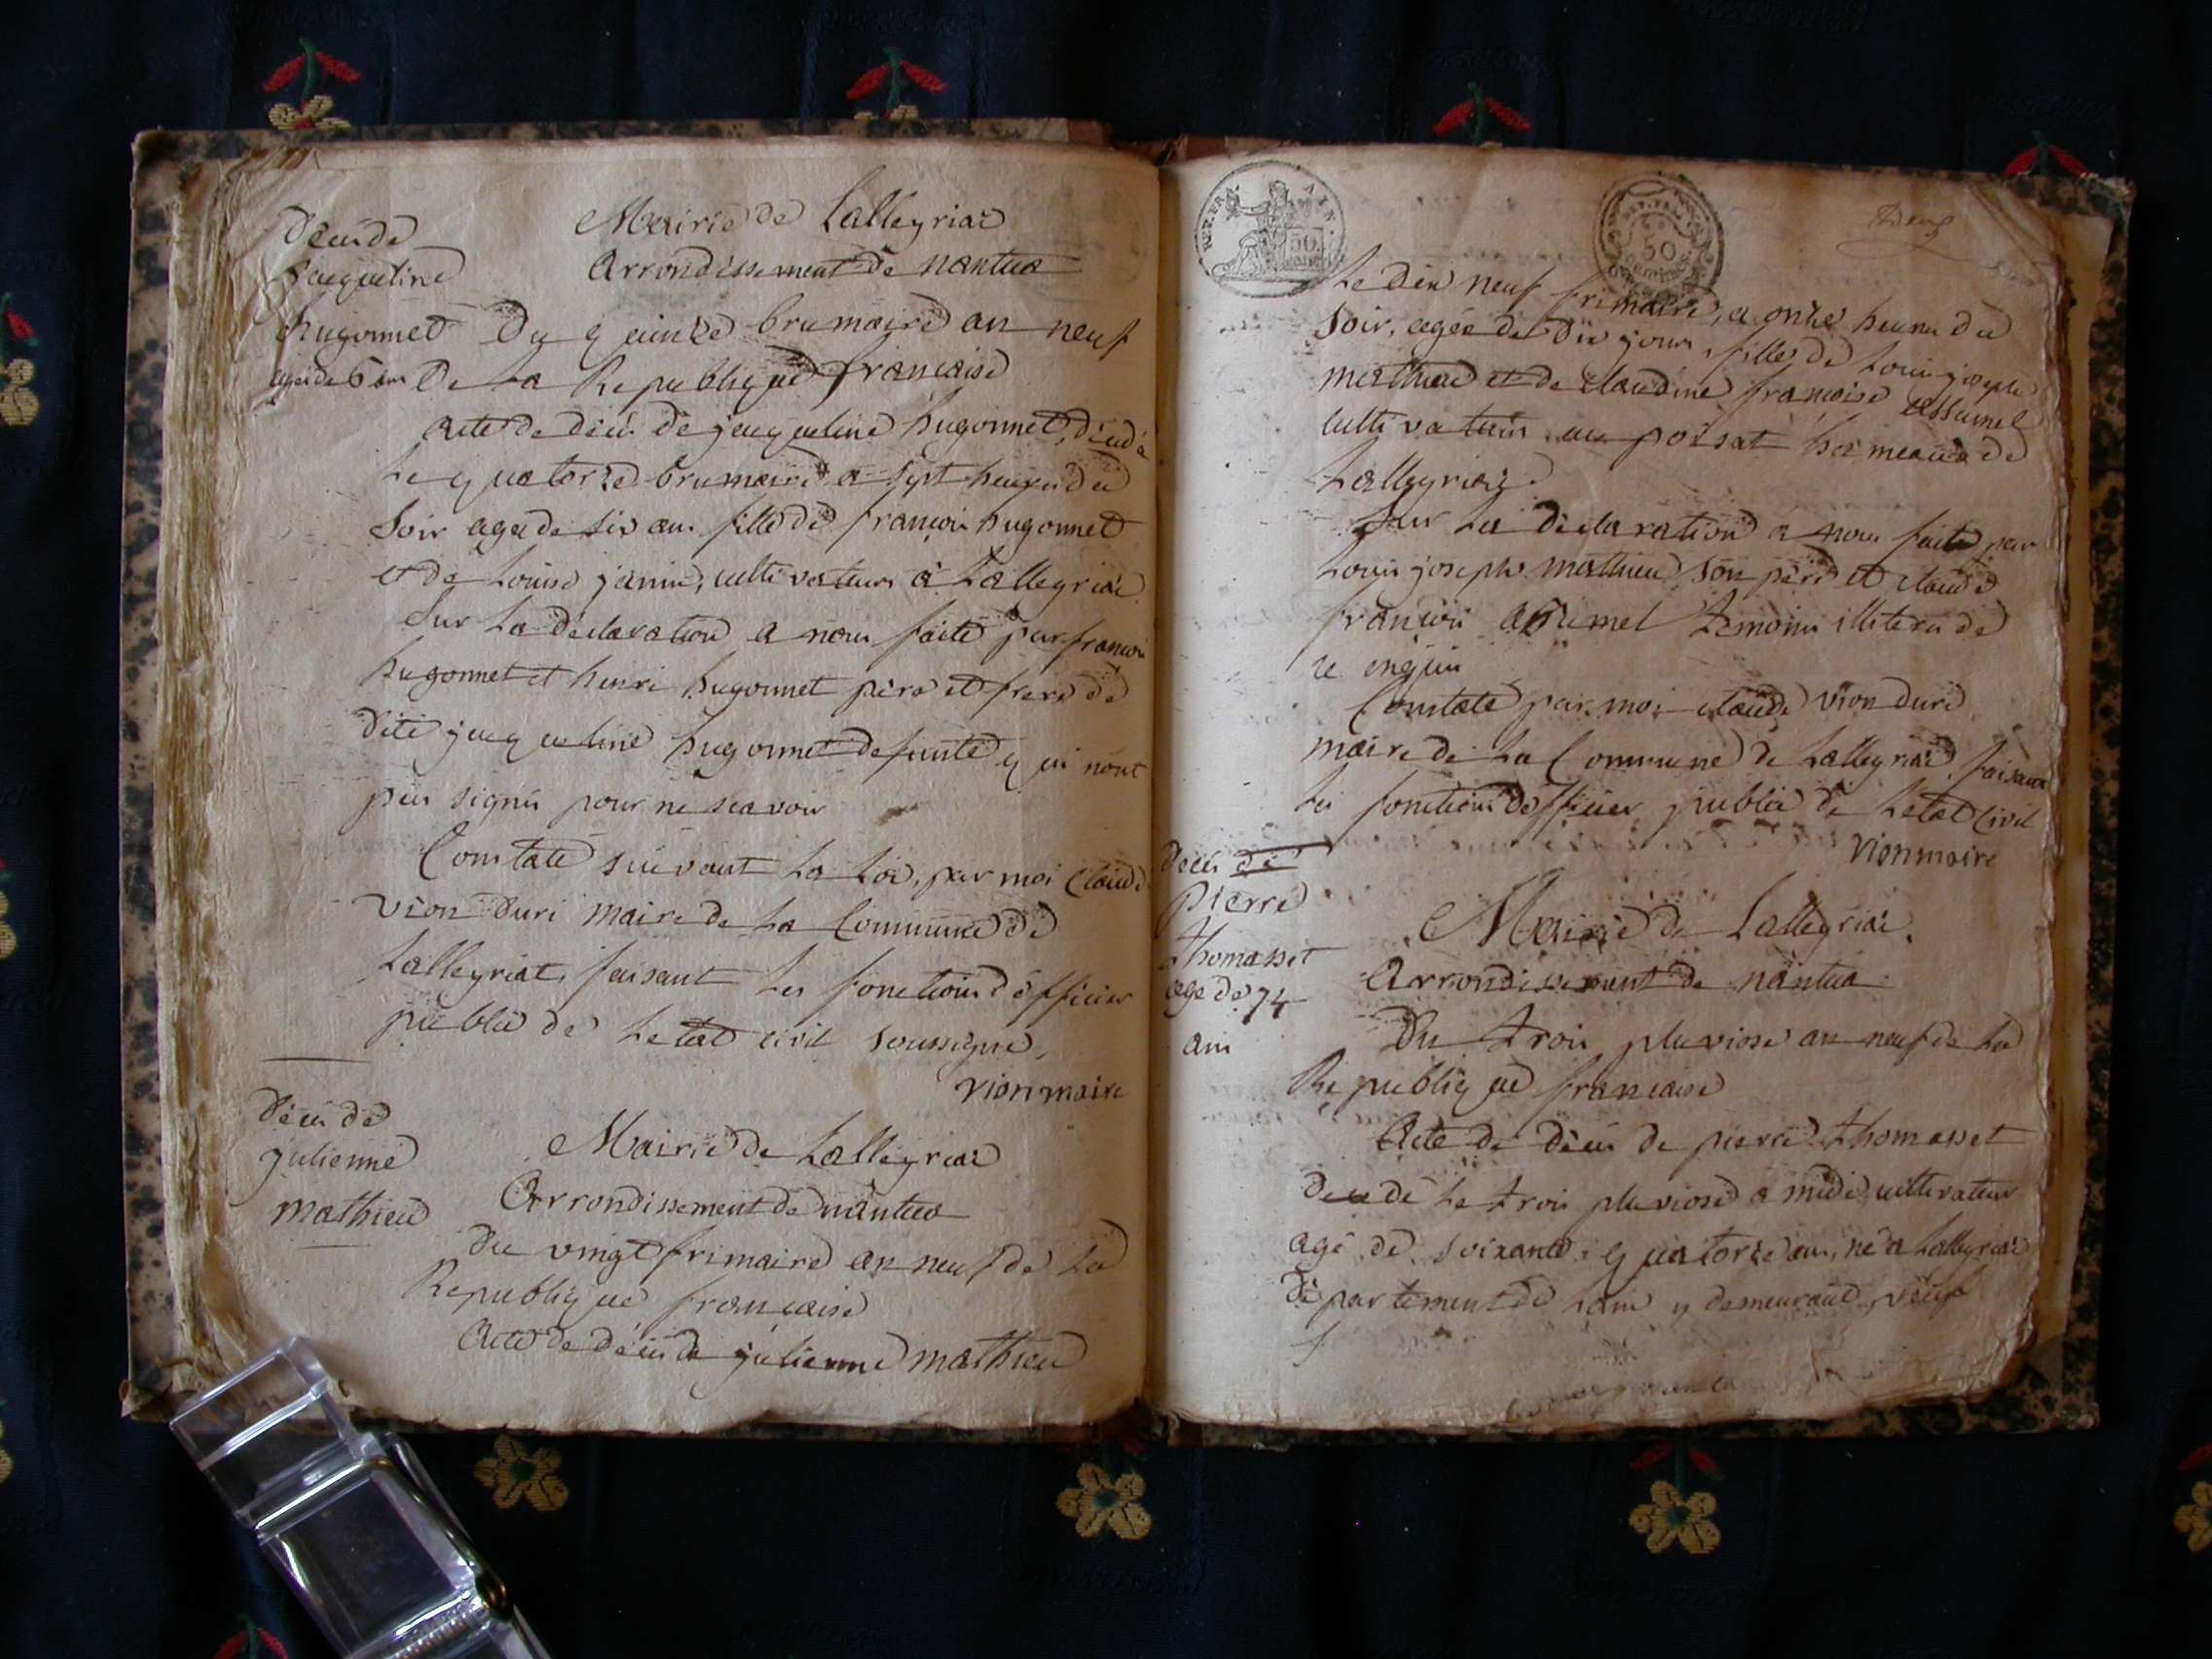 Décès de
Jacqueline
hugonnet
agée de 6 ans
Mairie de Lalleyriat
Arrondissement de nantua
Du quinze brumaire an neuf
De La Republique francaise
acte de décès de jacqueline hugonnet, décédée
Le quatorze brumaire a sept heures du
Soir agée de six ans fille de francois hugonnet
et de Louise janin, cultivateurs à Lalleyriat
Sur La déclaration a nous faite par francois
hugonnet et henri hugonnet père et frere de
dite jacqueline hugonnet defunte qui nont
pas signés pour ne scavoir
Constaté suivant La Loi, par moi Claude
vion duri maire de La Commune de
Lalleyriat, faisant Les fonctions d'officier
public de Letat civil soussigné,
vion maire
Décès de
julienne
mathieu
Mairie de Lalleyriat
Arrondissement de nantua
du vingt frimaire an neuf de La
Republique francaise
Acte de décès de julienne mathieu
REP. FR. AIN
50
50
Le dix neuf frimaire, a onze heures du
Soir, agée de dix jours, fille de Louis joseph
mathieu et de claudine francoise assumel
cultivateurs au poisat hameaux de
Lalleyriat.
Sur La déclaration a nous faite par
Louis joseph mathieu son père et claude
francois assumel temoins illiterés de
ce enquis
Constaté par moi claude vion duri
maire de La Commune de Lalleyriat faisant
Les fonctions d'officier public de Letat Civil
vion maire
Décès de
Pierre
thomasset
agé de 74
ans
Mairie de Lalleyriat.
Arrondissement de nantua
Du trois pluviose an neuf de La
Republique francaise
Acte de décès de pierre thomasset
décédé Le trois pluviose a midi, cultivateur
agé de soixante quatorze ans, né a Lalleyriat
département de Lain y demeurant, veuf